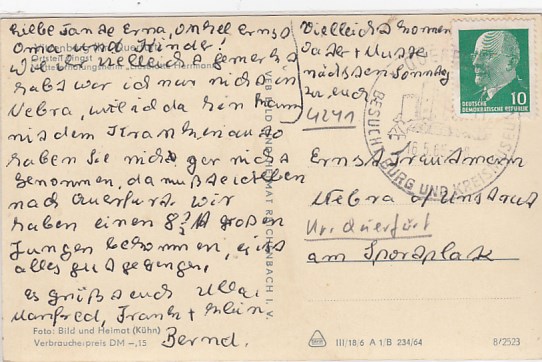 Liebe Tante Erna, Onkel Ernst
Oma und Kinder!
Wie ihr vielleicht gemerkt
habt war ich nur nicht in
Nebra, weil ich da hin kam
mit dem Krankenauto
haben Sie nicht gar nicht
genommen, da mußte ich allen
nach Querfurt. Wir
haben einen 8 ½ ℔ großen
Jungen bekommen, es ist
alles gut gegangen.
Es grüßt euch
Manfred, Frank + klein
Bernd.
Foto: Bild und Heimat (Kühn)
Verbraucherpreis DM –,15
VEB BILD UND HEIMAT REICHENBACH I. V.
Vielleicht kommen
Vater + Mutter
nächsten Sonntag
zu euch
4241
DEUTSCHE
DEMOKRATISCHE REPUBLIK
10
BESUCHT BURG UND KREISMUSEUM
16.5.65
Ernst Trautmann
Nebra / Unstrut
Kr. Querfurt
am Sportplatz
III/18/6 A 1/B 234/64
8/2523